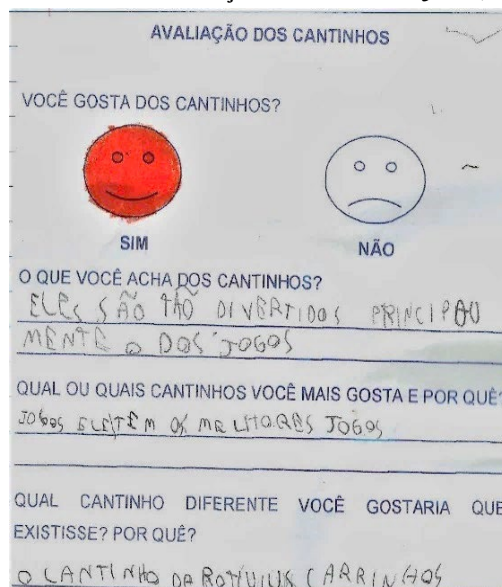 AVALIAÇÃO DOS CANTINHOS
VOCÊ GOSTA DOS CANTINHOS?
SIM NÃO
O QUE VOCÊ ACHA DOS CANTINHOS?
ELES SÃO TÃO DIVERTIDOS PRINCIPAU
MENTE O DOS JOGOS
QUAL OU QUAIS CANTINHOS VOCÊ MAIS GOSTA E POR QUÊ?
JOGOS ELE TEM OS MELHORES JOGOS
QUAL CANTINHO DIFERENTE VOCÊ GOSTARIA QUE
EXISTISSE? POR QUÊ?
O CANTINHO CARRINHOS